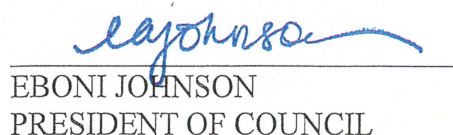 eajohnson
EBONI JOHNSON
PRESIDENT OF COUNCIL